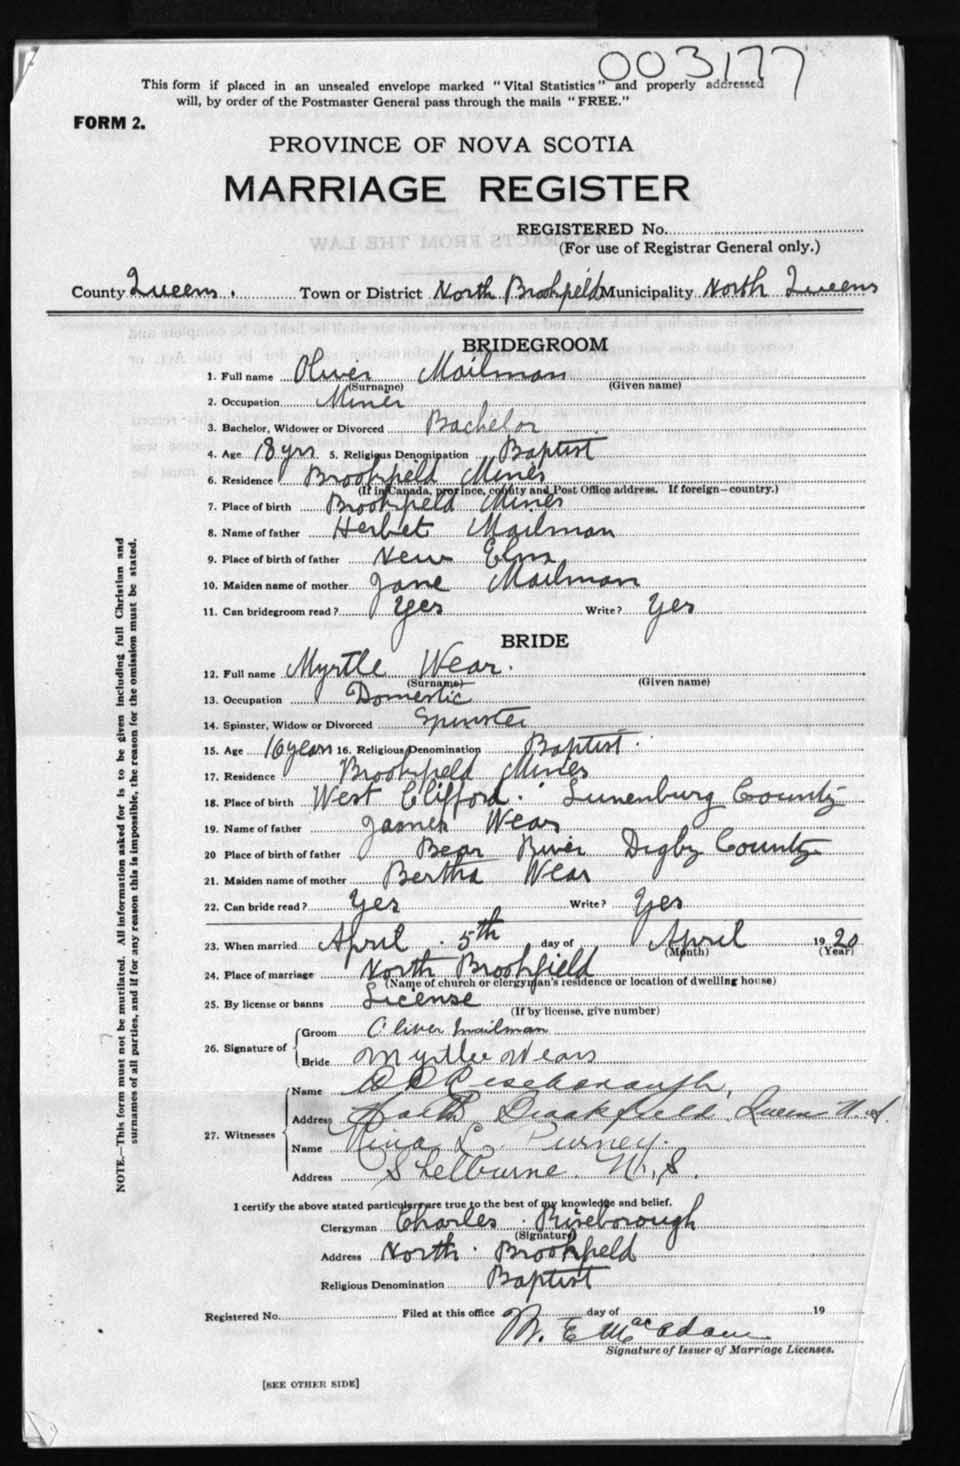 003177
This form if placed in an unsealed envelope marked "Vital Statistics" and properly addressed
will, by order of the Postmaster General pass through the mails "FREE."
FORM 2.
PROVINCE OF NOVA SCOTIA
MARRIAGE REGISTER
REGISTERED No.
(For use of Registrar General only.)
County Queens. Town or District North Brookfield Municipality North Queens
BRIDEGROOM
1. Full name Oliver Mailman
(Surname) (Given name)
2. Occupation Miner
3. Bachelor, Widower or Divorced Bachelor
4. Age 18 yrs 5. Religious Denomination Baptist
6. Residence Brookfield Mines
(If in Canada, province, county and Post Office address. If foreign—country.)
7. Place of birth Brookfield Mines
8. Name of father Herbet Mailman
9. Place of birth of father New Elm
10. Maiden name of mother Jane Mailman
11. Can bridegroom read? Yes Write? Yes
BRIDE
12. Full name Myrtle Wear.
(Surname) (Given name)
13. Occupation Domestic
14. Spinster, Widow or Divorced Spinster
15. Age 16 years 16. Religious Denomination Baptist.
17. Residence Brookfield Mines
18. Place of birth West Clifford. Lunenburg County
19. Name of father James Wear
20 Place of birth of father Bear River Digby County
21. Maiden name of mother Bertha Wear
22. Can bride read? Yes Write? Yes
23. When married April. 5th day of April 1920
(Month) (Year)
24. Place of marriage North Brookfield
(Name of church or clergyman's residence or location of dwelling house)
25. By license or banns License
(If by license, give number)
26. Signature of Groom Oliver Mailman
Bride Myrtle Wear
27. Witnesses Name
Address North Brookfield, Queens N.S.
Name Nina L. Purney.
Address Shelburne. N.S.
I certify the above stated particulars are true to the best of my knowledge and belief.
Clergyman Charles Riseborough
(Signature)
Address North Brookfield
Religious Denomination Baptist
Registered No. Filed at this office day of 19
N. E. MacAdam
Signature of Issuer of Marriage Licenses.
[SEE OTHER SIDE]
NOTE.—This form must not be mutilated. All information asked for is to be given including full Christian and
surnames of all parties, and if for any reason this is impossible, the reason for the omission must be stated.